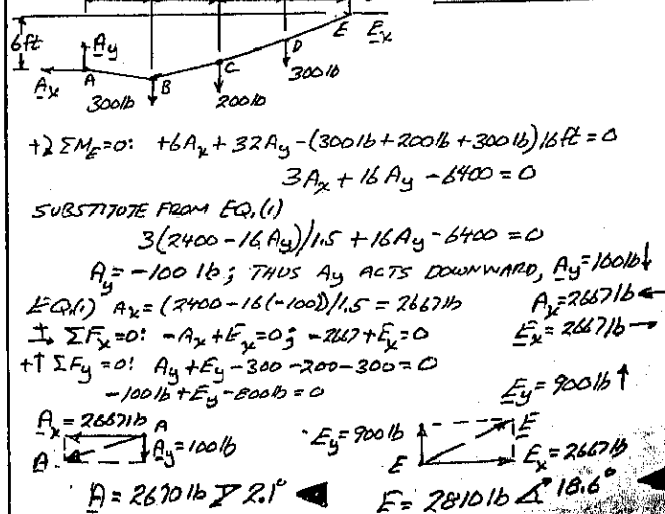 6ft
Ay
Ax
A
B
C
D
E
Ex
300lb
200lb
300lb
+⤸ ΣM_E=0: +6Ax + 32Ay - (300lb + 200lb + 300lb)16ft = 0
3Ax + 16Ay - 6400 = 0
SUBSTITUTE FROM EQ.(1)
3(2400 - 16Ay)/1.5 + 16Ay - 6400 = 0
Ay = -100 lb; THUS Ay ACTS DOWNWARD, Ay = 100lb↓
EQ.(1) Ax = (2400 - 16(-100))/1.5 = 2667lb Ax = 2667lb ←
±→ ΣFx=0: -Ax + Ex = 0; -2667 + Ex = 0 Ex = 2667lb →
+↑ ΣFy=0: Ay + Ey - 300 - 200 - 300 = 0
-100lb + Ey - 800lb = 0 Ey = 900lb ↑
Ax = 2667lb A
A Ay = 100lb
Ey = 900lb E
E Ex = 2667lb
A = 2670lb 2.1° ◀
E = 2810lb ∡ 18.6° ◀